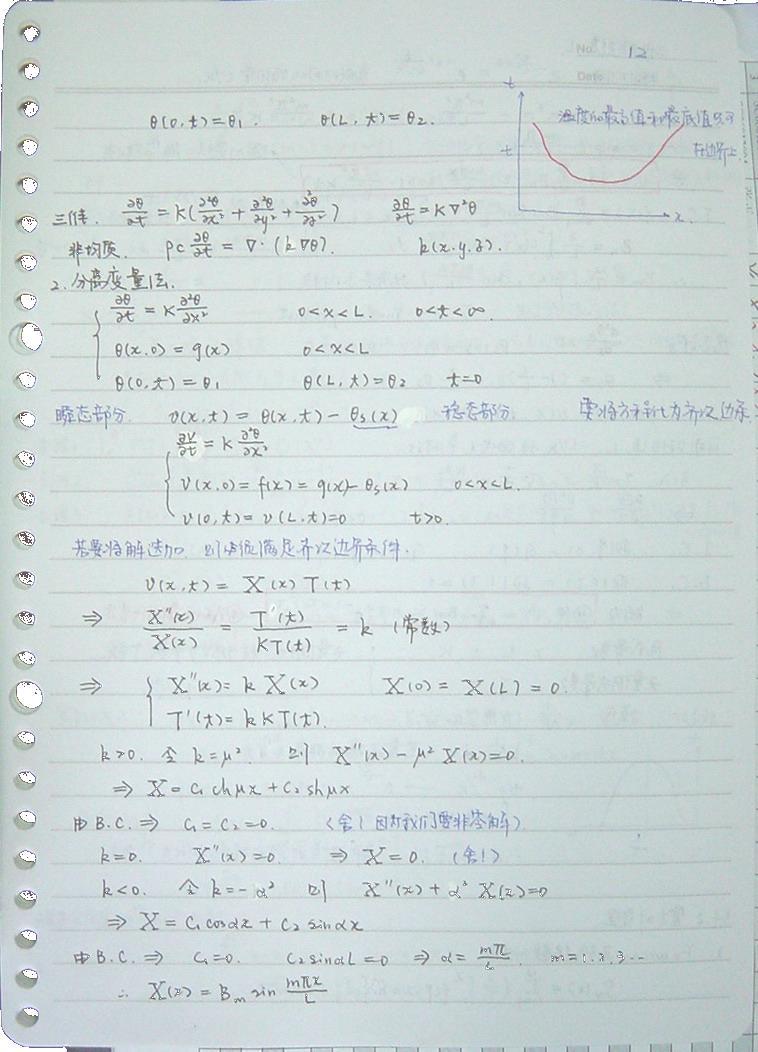 No. 12
Date
θ(0,t)=θ₁. θ(L,t)=θ₂.
t
温度的最高值和最底值只可
在边界上.
t
x.
三维. ∂θ/∂t = K(∂²θ/∂x² + ∂²θ/∂y² + ∂²θ/∂z²) ∂θ/∂t = K∇²θ
非均质. ρc ∂θ/∂t = ∇·(k∇θ). k(x.y.z).
2. 分离变量法.
∂θ/∂t = K ∂²θ/∂x² 0<x<L. 0<t<∞.
θ(x,0) = g(x) 0<x<L
θ(0,t) = θ₁ θ(L,t)=θ₂ t=0
瞬态部分. v(x,t) = θ(x,t) - θs(x) 稳态部分. 要将方程化为齐次边条
∂V/∂t = K ∂²θ/∂x²
V(x,0) = f(x) = g(x)-θs(x) 0<x<L.
v(0,t) = v(L,t)=0 t>0.
若要将解迭加. 则必须满足齐次边界条件.
v(x,t) = X(x) T(t)
⇒ X''(x)/X(x) = T'(t)/KT(t) = k (常数)
⇒ X''(x) = k X(x) X(0) = X(L) = 0.
T'(t) = k K T(t).
k>0. 令 k=μ². 则 X''(x) - μ² X(x)=0.
⇒ X = C₁ chμx + C₂ shμx
由 B.C. ⇒ C₁=C₂=0. (舍! 因为我们要非零解)
k=0. X''(x)=0. ⇒ X=0. (舍!)
k<0. 令 k=-α² 则 X''(x) + α² X(x)=0
⇒ X = C₁ cosαx + C₂ sinαx
由 B.C. ⇒ C₁=0. C₂ sinαL=0 ⇒ α = mπ/L. m=1.2.3...
∴ X(x) = Bm sin mπx/L